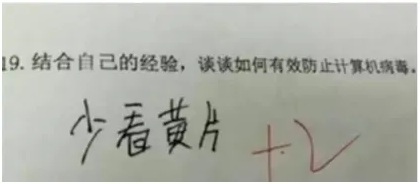 19. 结合自己的经验，谈谈如何有效防止计算机病毒.
少看黄片
+2